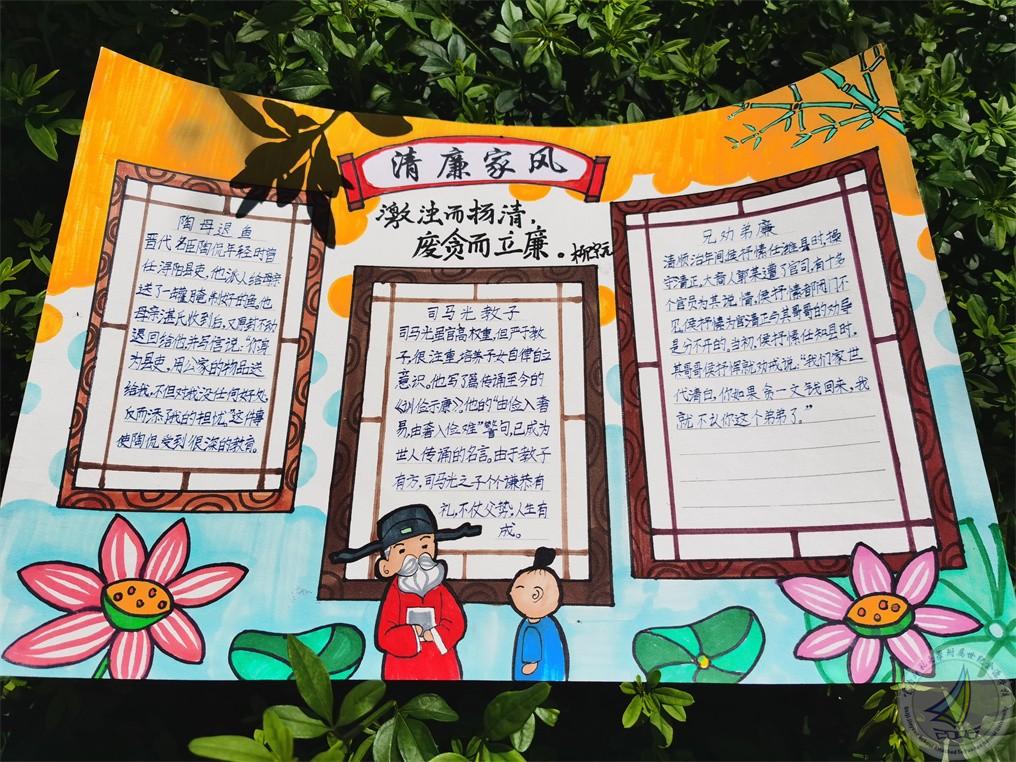 清廉家风
激浊而扬清，
废贪而立廉。
陶母退鱼
晋代名臣陶侃年轻时曾
任浔阳县吏，他派人给母亲
送了一罐腌制好的鱼。他
母亲湛氏收到后，又原封不动
退回给他并写信说："你身
为县吏，用公家的物品送
给我，不但对我没任何好处，
反而添我的担忧。"这件事
使陶侃受到很深的教育。
司马光教子
司马光虽官高权重，但严于教
子，很注重培养子女自律自立
意识。他写了篇传诵至今的
《训俭示康》。他的"由俭入奢
易，由奢入俭难"警句，已成为
世人传诵的名言。由于教子
有方，司马光之子个个谦恭有
礼，不仗父势，人生有
成。
兄劝弟廉
清顺治年间侯抒愫任潍县时，操
守清正，大商人郭某遭了官司，有十多
个官员为其说情，侯抒愫都闭门不
见。侯抒愫为官清正与其哥哥的劝导
是分不开的。当初，侯抒愫任知县时，
其哥哥侯抒愫就劝戒说："我们家世
代清白，你如果贪一文钱回来，我
就不认你这个弟弟了。"